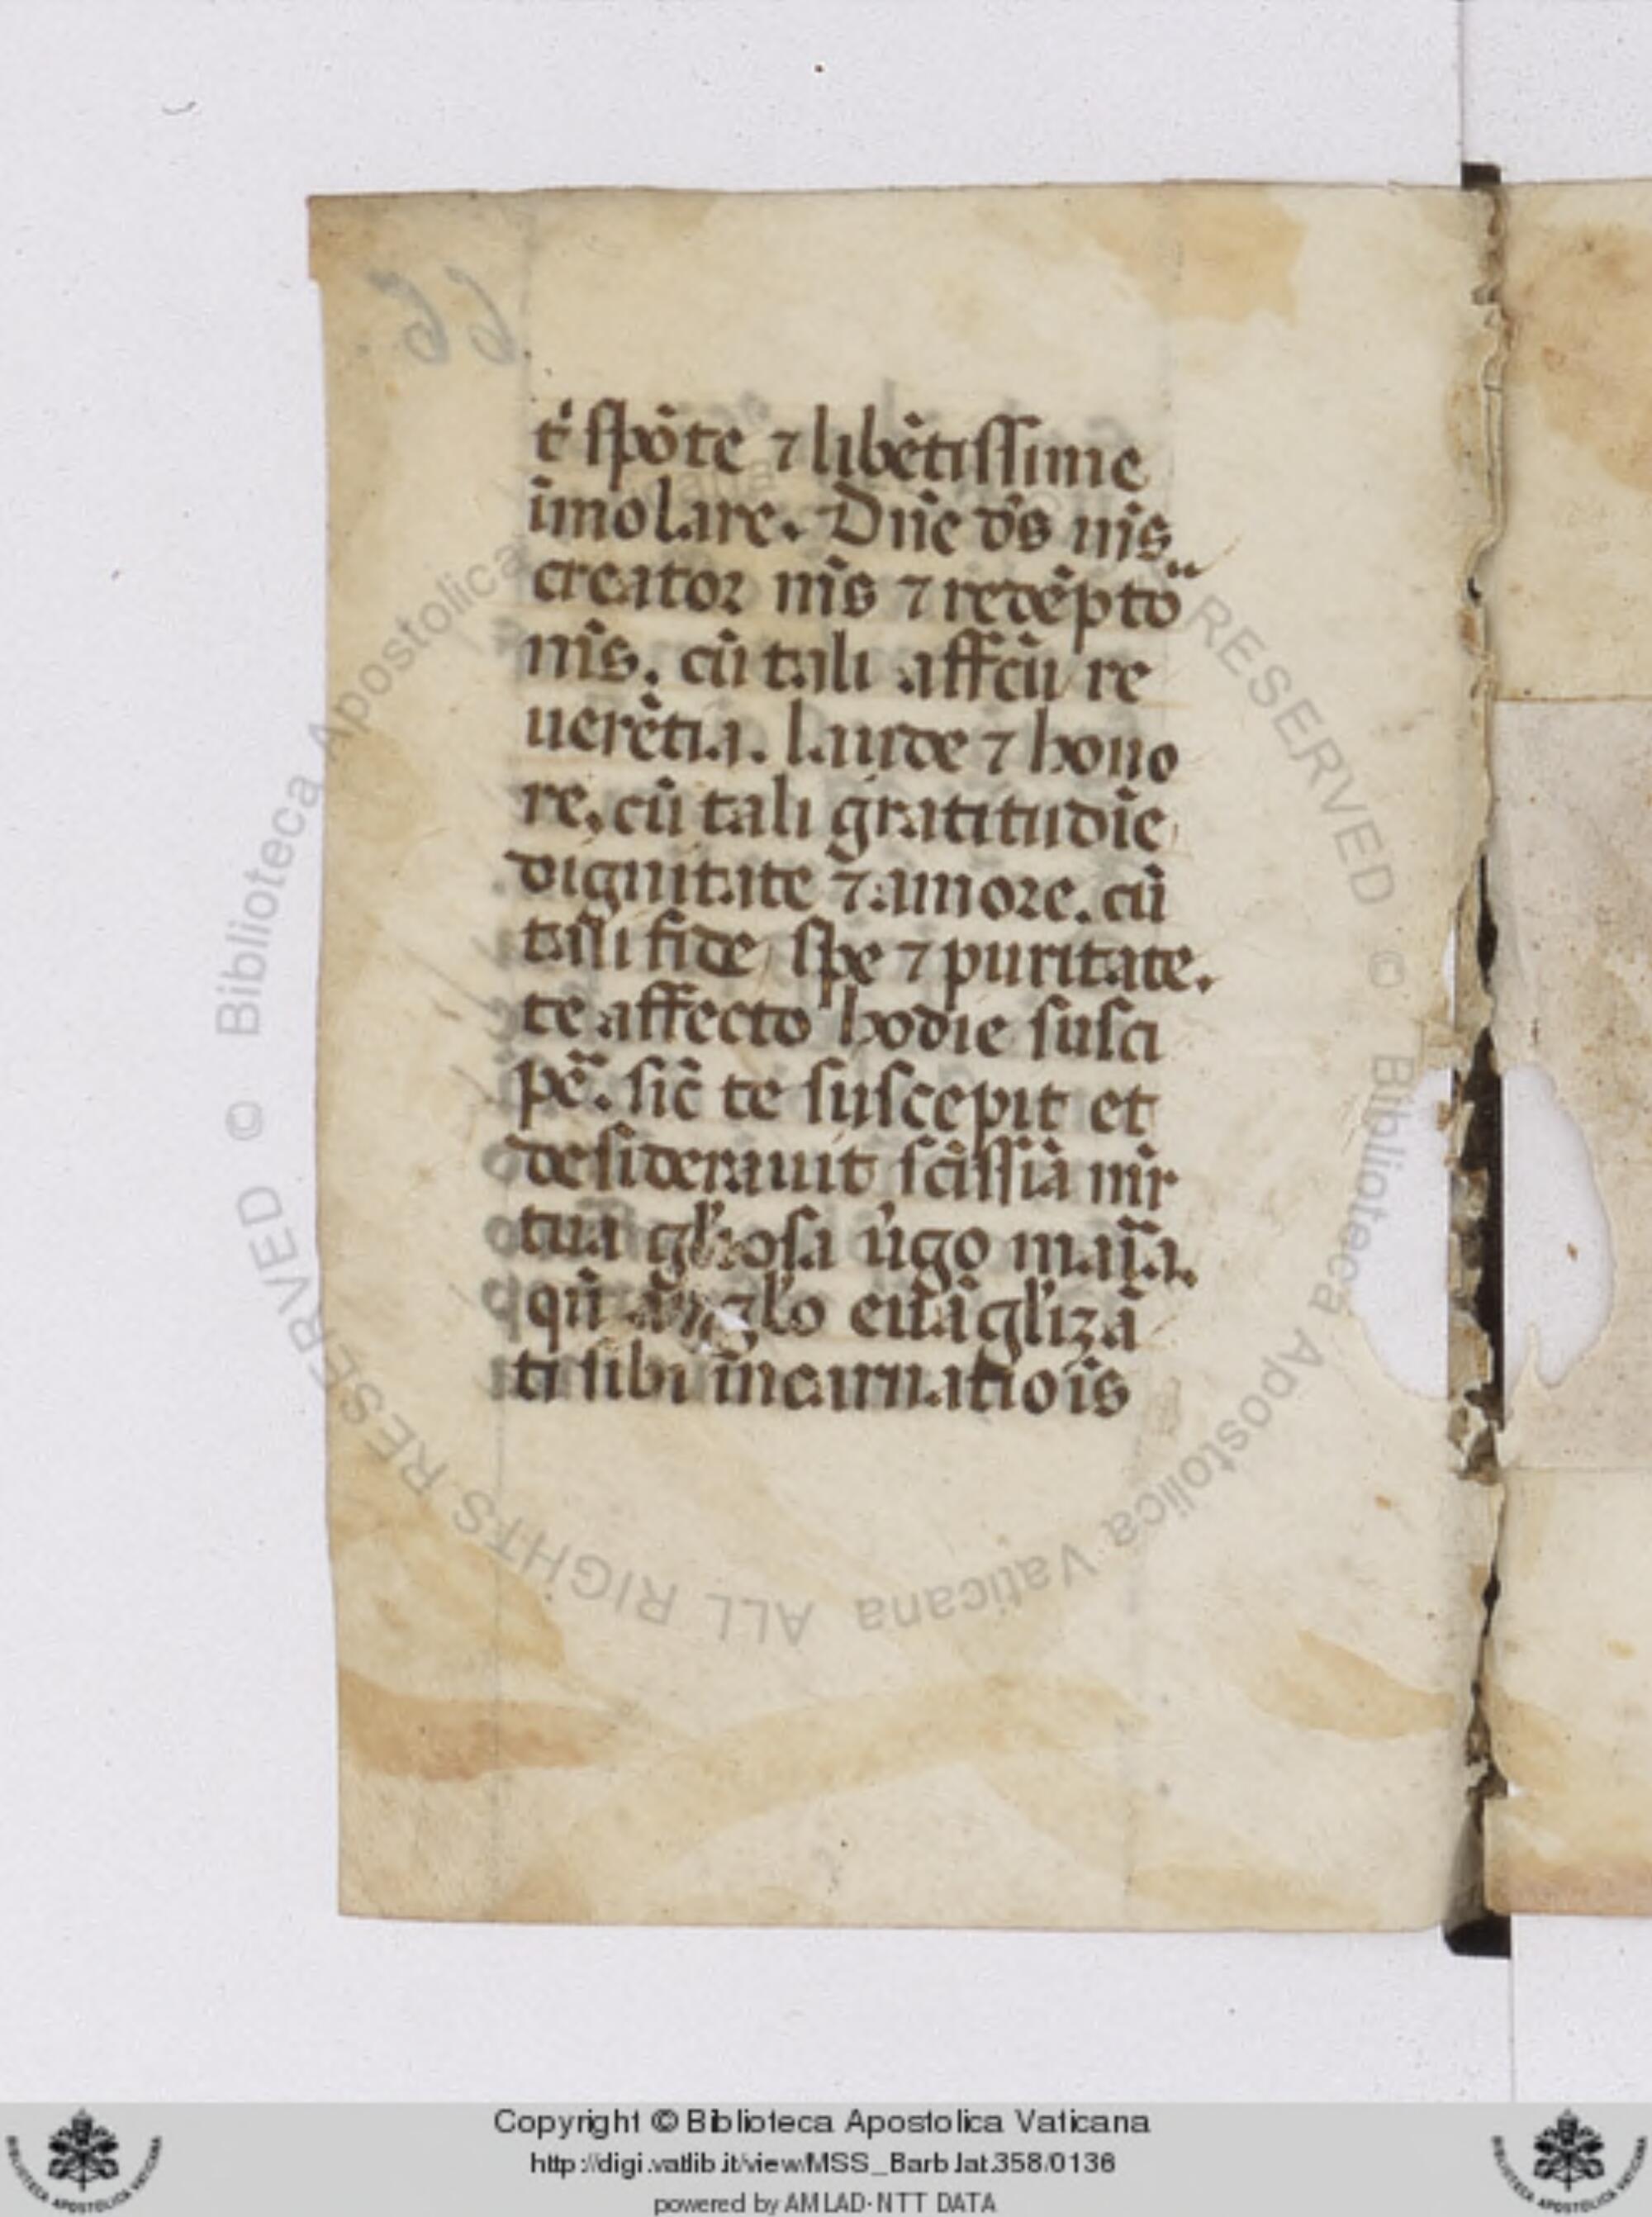 66.
tͥ spõte ⁊ libẽtissime
ĩmolare. Dñe d̃s nr̃s
creator nr̃s ⁊ redẽpto
nr̃s. cũ tali affcũ re
uerẽtia. laude ⁊ hono
re, cũ tali gratitudĩe
dignitate ⁊ amore. cũ
tali fide, spe ⁊ puritate.
te affecto hodie susci
pe᷑. sic̃ te suscepit et
desiderauit sc̃issiã mr̃
tua gl'iosa ũgo mar̃ia.
qñ ãgl'o euãgl'izã
ti sibi ĩncarnatiõis
Biblioteca Apostolica Vaticana ALL RIGHTS RESERVED © Biblioteca Apostolica Vaticana ALL RIGHTS RESERVED ©
Copyright © Biblioteca Apostolica Vaticana
http://digi.vatlib.it/view/MSS_Barb.lat.358/0136
powered by AMLAD-NTT DATA
BIBLIOTECA APOSTOLICA VATICANA
BIBLIOTECA APOSTOLICA VATICANA